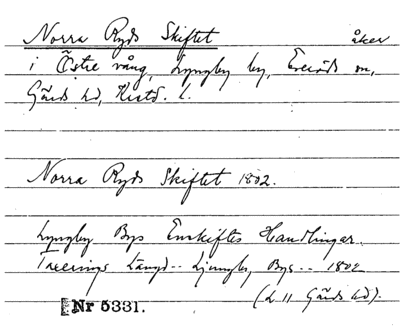 Norra Ryds Skiftet åker
i Östre vång, Lyngby by, Everöds sn,
Gärds hd, Krstd. l.
Norra Ryds Skiftet 1802.
Lyngby Bys Enskiftes Handlingar.
Längd -- Ljungby Bys -- 1802
(L 11 Gärds hd).
Nr 5331.